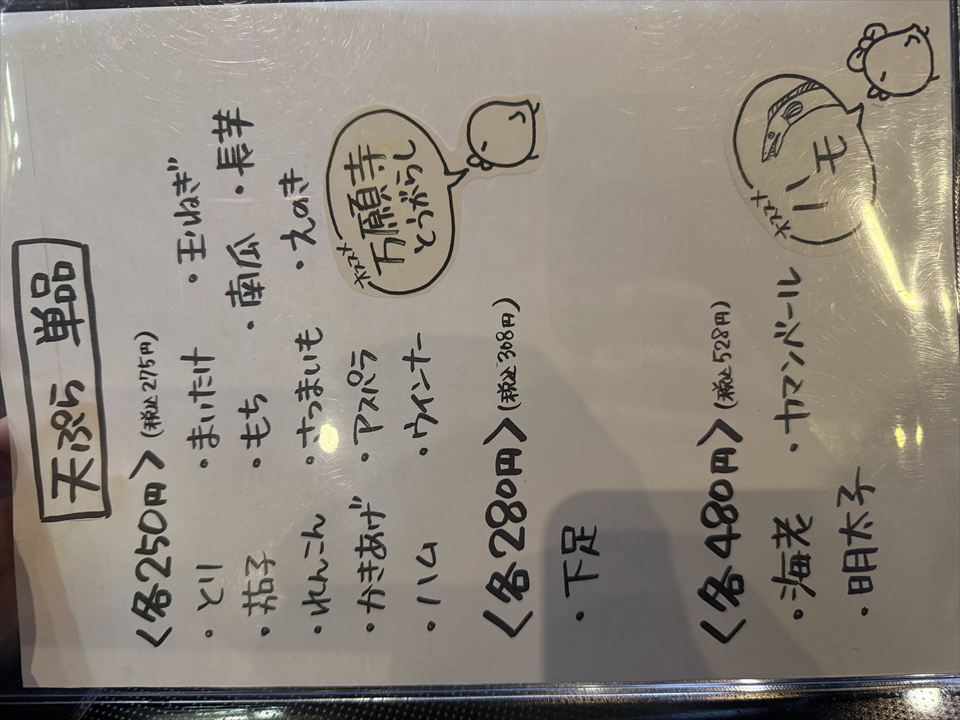 天ぷら 単品
〈各250円〉(税込275円)
・とり ・まいたけ ・玉ねぎ
・茄子 ・もち ・南瓜 ・長芋
・れんこん ・さつまいも ・えのき
・かきあげ ・アスパラ
・ハム ・ウインナー
オススメ
万願寺
とうがらし
〈各280円〉(税込308円)
・下足
〈各480円〉(税込528円)
・海老 ・カマンベール
・明太子
オススメ
ハモ